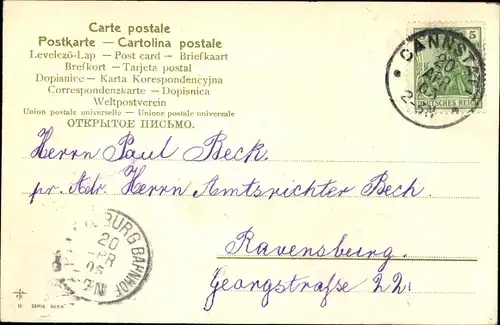 Carte postale
Postkarte — Cartolina postale
Levelező-Lap — Post card — Briefkaart
Brefkort — Tarjeta postal
Dopisnice — Karta Korespondencyjna
Correspondenzkarte — Dopisnica
Weltpostverein
Union postale universelle — Unione postale universale
ОТКРЫТОЕ ПИСЬМО.
5
DEUTSCHES REICH
CANNSTATT
20
APR
05
Herrn Paul Beck.
pr. Adr. Herrn Amtsrichter Bech.
Ravensburg.
Georgstraße 22.
BURG BAHNHOF
20
APR
05
SERIE